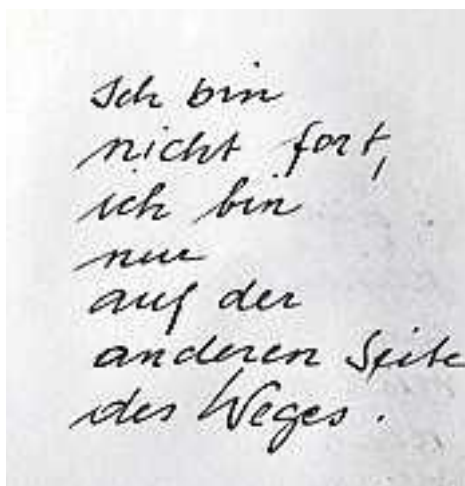 Ich bin
nicht fort,
ich bin
nur
auf der
anderen Seite
des Weges.